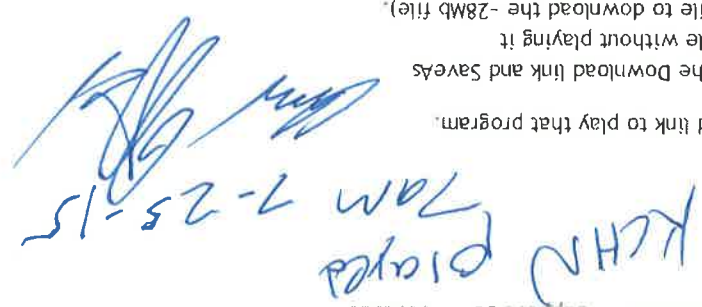 KCHN played
7am 7-25-15
d link to play that program.
he Download link and SaveAs
le without playing it
ile to download the ~28Mb file).